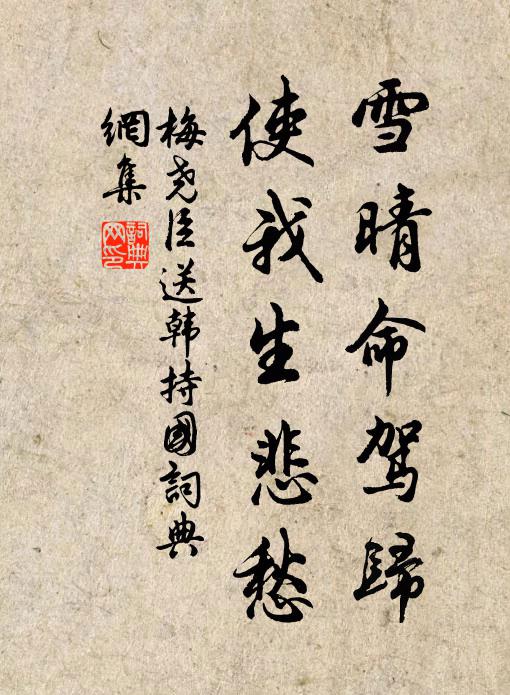 雪晴命駕歸
使我生悲愁
梅尧臣送韩持國詞典
網集
詞典網印